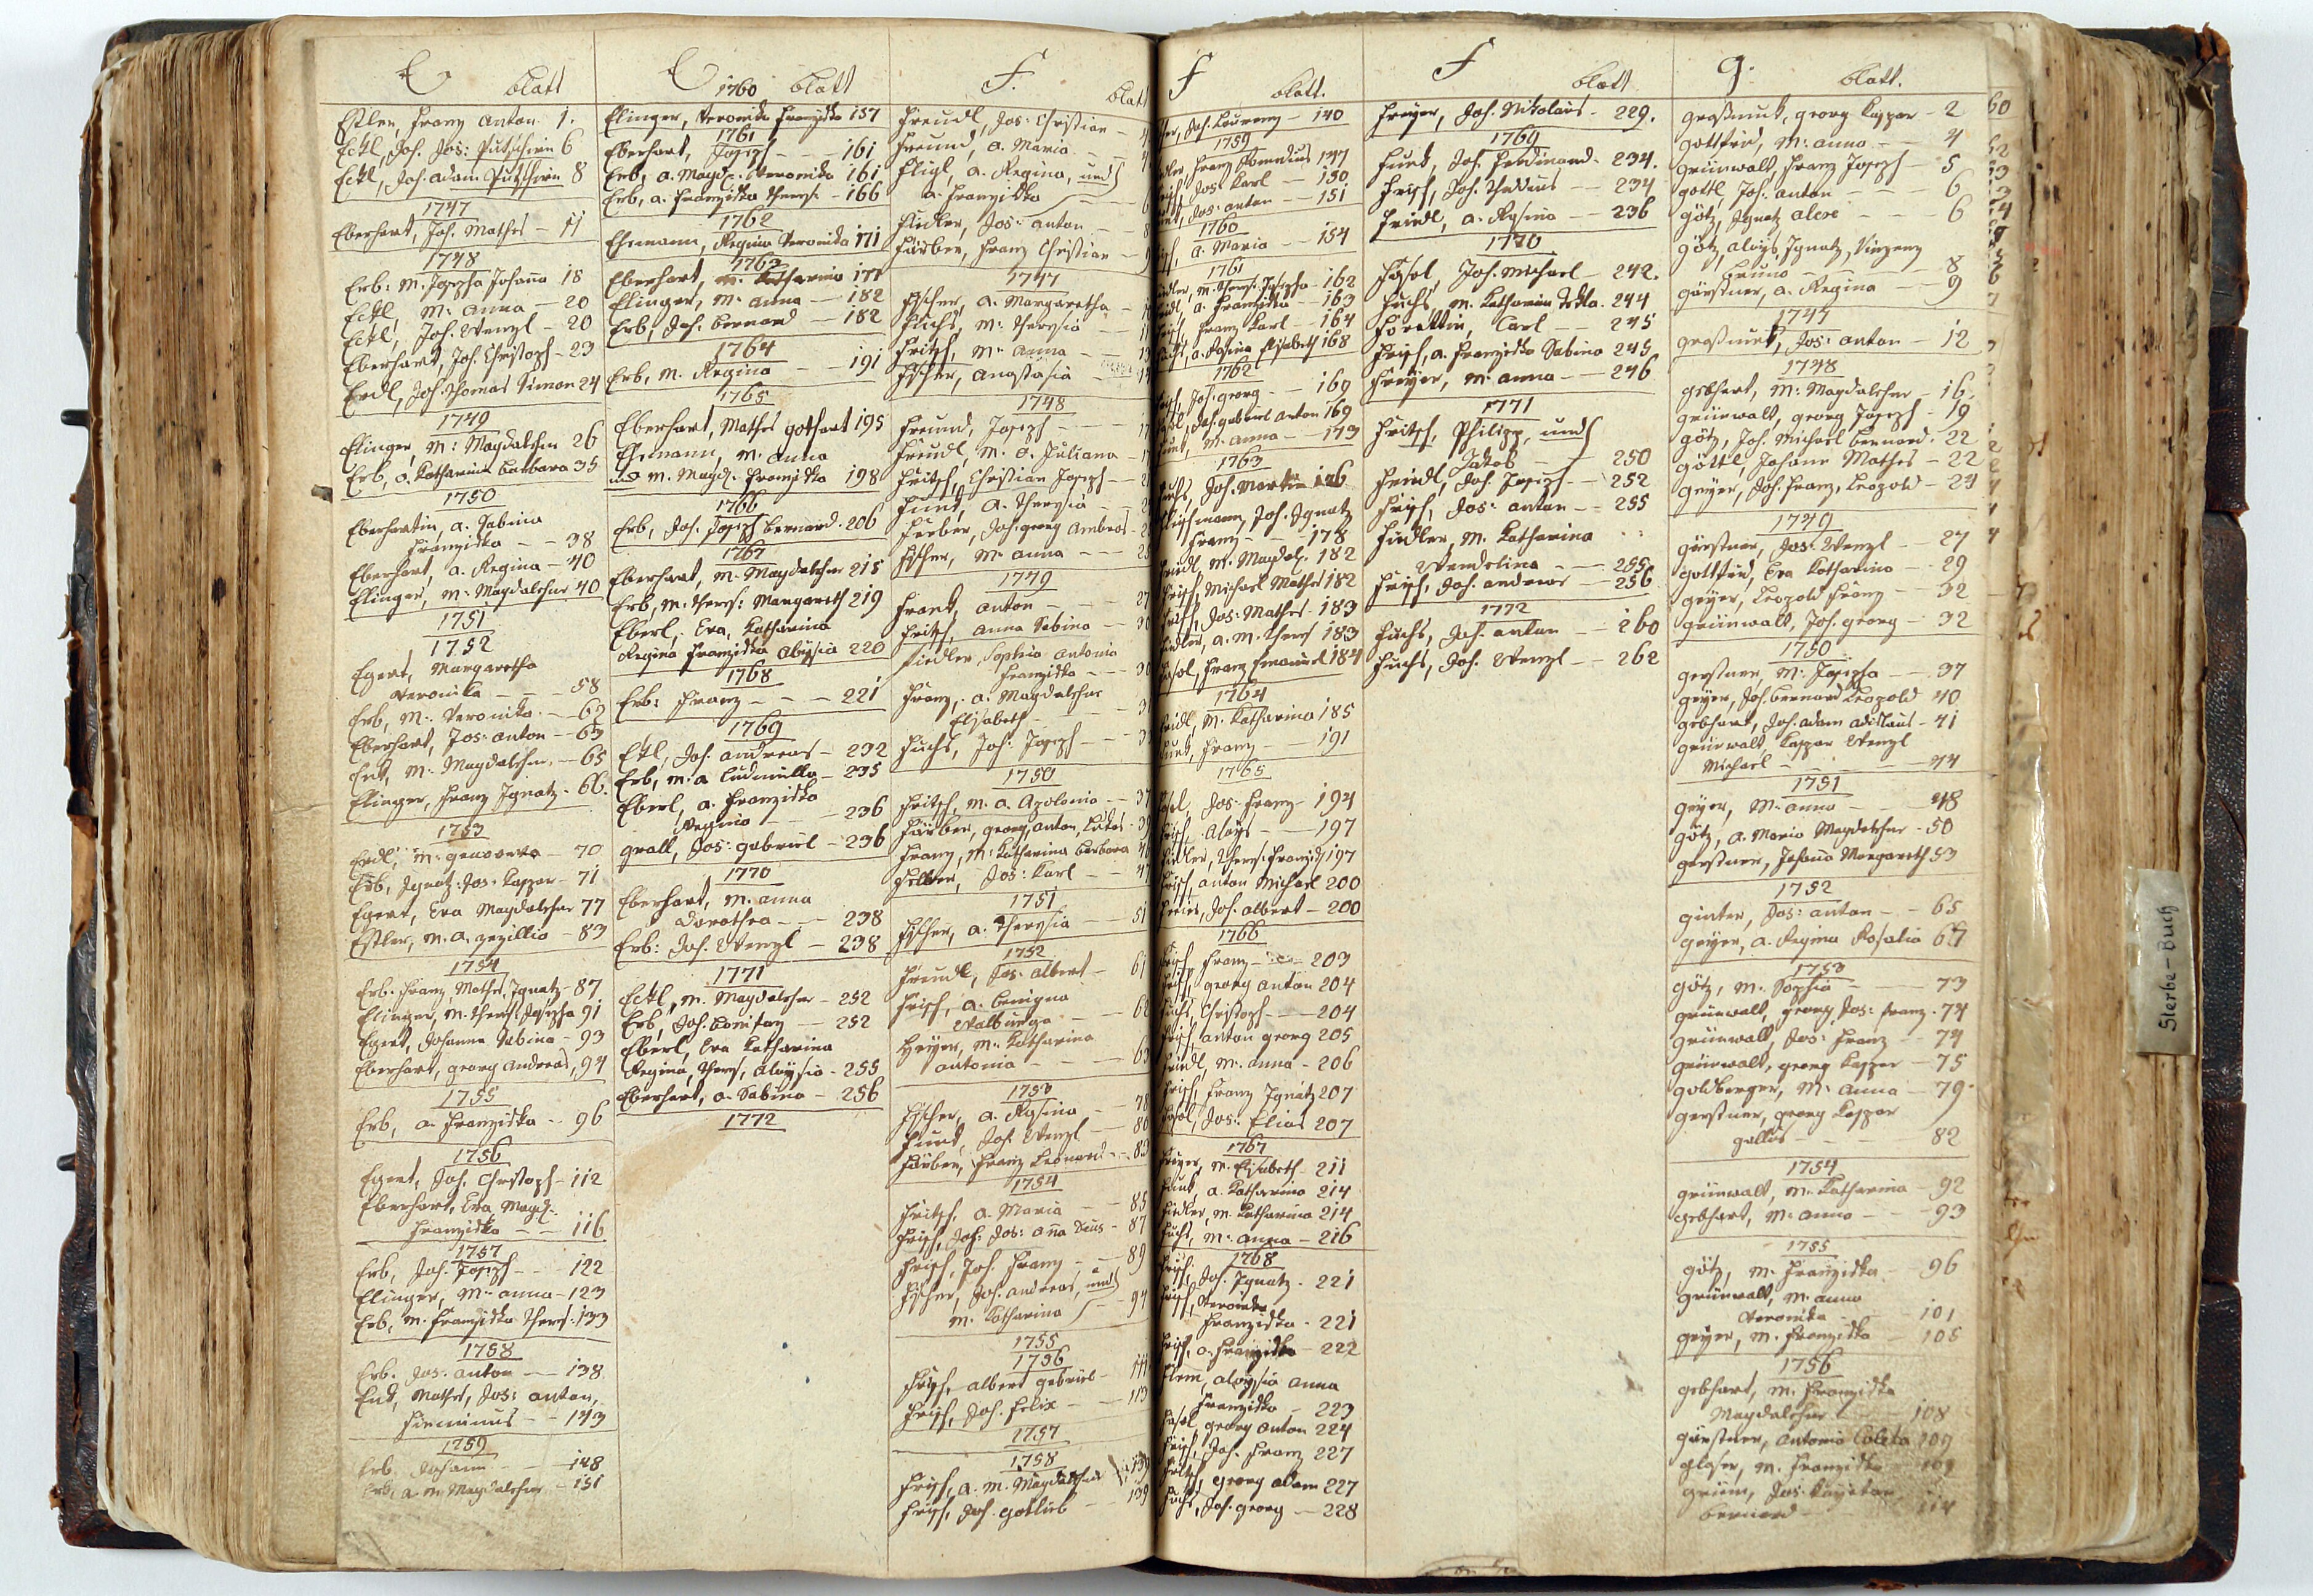 E blatt
Eßlen, Franz Anton 1.
Eckl, Joh. Jos: Putschirn 6
Eckl, Joh. Adam Putschirn 8
1747
Eberhart, Joh. Mathes - 11
1748
Erb: M. Josepha Johana 18
Eckl, M: Anna - 20
Eckl, Joh. Wenzl - 20
Eberhart, Joh. Christoph - 23
Erdl, Joh. Thomas Simon 24
1749
Elinger, M: Magdalena 26
Erb, A. Katharina Barbara 35
1750
Eberhartin, A. Sabina
Franziska - - 38
Eberhart, A. Regina - 40
Elinger, M: Magdalena 40
1751
1752
Egert, Margaretha
Veronika - - - 58
Erb, M: Veronika - 62
Eberhart, Jos: Anton - 63
M: Magdalena - 65
Elinger, Franz Ignatz - 66.
1753
Erdl, M: Genoveva - 70
Erb, Ignatz: Jos: Kaspar - 71
Egert, Eva Magdalena 77
Eßler, M. A. Zezillia - 83
1754
Erb. Franz, Mathes, Ignatz - 87
Elinger, M. Theres: Josepha 91
Egert, Johanna Sabina - 93
Eberhart, Georg Andreas, 94
1755
Erb, A. Franziska - 96
1756
Egert, Joh. Christoph - 112
Eberhart, Eva Magd:
Franziska - - 116
1757
Erb, Joh. Joseph - - 122
Elinger, M: Anna - 123
Erb, M. Franziska Theres: 133
1758
Erb. Jos: Anton - 138
Mathes, Jos: Anton,
- - 143
1759
Erb. Johann - - 148
Erb, A. M. Magdalena - 151
E 1760 blatt
Elinger, Veronika Franziska 157
1761
Eberhart, Joseph - - - 161
Erb, A. Magd: Veronika 161
Erb, A. Franziska Theres: - 166
1762
Ehemann, Regina Veronika 171
1763
Eberhart, M. Katharina 177
Elinger, M: Anna - 182
Erb, Joh. Bernard - 182
1764
Erb, M. Regina - - 191
1765
Eberhart, Mathes Gothart 195
Ehemann, M. Anna
und M. Magd: Franziska 198
1766
Erb, Joh. Joseph Bernard - 206
1767
Eberhart, M. Magdalena 215
Erb, M. Theres: Margareth 219
Eberl, Eva, Katharina
Regina Franziska Aloysia 220
1768
Erb: Franz - - - 221
1769
Ekl, Joh. Andreas - 232
Erb, M: A Ludmilla - 235
Eberl, A. Franziska
Regina - - 236
Grall, Jos: Gabriel - 236
1770
Eberhart, M. Anna
Dorothea - - 238
Erb: Joh. Wenzl - 238
1771
Eckl, M. Magdalena - 252
Erb, Joh. Bonifaz - 252
Eberl, Eva Katharina
Regina, Theres, Aloysia - 255
Eberhart, A. Sabina - 256
1772
F. blatt
Freudl, Jos: Christian - 4
Freund, A. Maria - 4
Fligl, A. Regina, und
A. Franziska - - 6
Fiedler, Jos: Anton - 8
Färber, Franz Christian - 9
1747
Fischer, A. Margaretha -
Fuchs, M: Theresia -
Fritsch, M: Anna -
Fischer, Anastasia -
1748
Freund, Joseph - -
Freudl, M. A. Juliana -
Fritsch, Christian Joseph -
Funk, A. Theresia -
Färber, Joh. Georg Ambros -
Fischer, M: Anna - -
1749
Frank, Anton - - 27
Fritsch, Anna Sabina - 30
Fiedler, Sophia Antonia
Franziska - - 30
Franz, A. Magdalena
Elisabeth -
Fuchs, Joh. Joseph - -
1750
Fritsch, M. A. Apolonia - 37
Färber, Georg, Anton, Lukas -
Franz, M: Katharina Barbara
Jos: Karl - - 47
1751
Fischer, A. Theresia - 51
1752
Freudl, Jos: Albert - 61
Frisch, A. Benigna
Walburga - 62
Heyer, M: Katharina
Antonia - 63
1753
Fischer, A. Rosina - 78
Funk, Joh. Wenzl - 80
Färber, Franz Leonard - 83
1754
Fritsch, A. Maria - 85
Frisch, Joh. Jos: - 87
Frisch, Joh. Franz - - 89
Fischer, Joh. Andreas, und
M. Katharina - - 94
1755
1756
Frisch, Albert Gabriel - 111
Frisch, Joh. Felix - - 113
1757
1758
Frisch, A. M. Magdalena 139
Frisch, Joh. Gotlieb - - 139
F blatt.
Joh. Laurenz - 140
1759
Franz Donatus 147
Jos: Karl - 150
Jos: Anton - - 151
1760
A. Maria - - 154
1761
M. Theres: Josepha - 162
A. Franziska - 163
Franz Karl - 164
A. Rosina Elisabeth 168
1762
Joh. Georg - 169
Joh. Gabriel Anton 169
M. Anna - 173
1763
Joh. Martin 176
Joh. Ignatz
Franz - - 178
M. Magdal: 182
Frisch, Michael Mathes 182
Jos: Mathes - 183
Fiedler, A. M. Theres 183
Fasol, Franz Emanuel 184
1764
M. Katharina 185
Franz - - 191
1765
Jos: Franz - 194
Aloys - - 197
Fiedler, Theres: Franzis: 197
Anton Michael 200
Joh. Albert - 200
1766
Franz - - 203
Georg Anton 204
Christoph - - 204
Anton Georg 205
M. Anna - 206
Franz Ignatz 207
Fasol, Jos: Elias 207
1767
Freyer, M. Elisabeth - 211
Funk, A. Katharina 214
Fiedler, M. Katharina 214
Fuchs, M: Anna - 216
1768
Frisch, Joh. Ignatz - 221
Frisch, Veronika
Franziska - 221
Frisch, A. Franziska - 222
Aloysia Anna
Franziska - 223
Fasol Georg Anton 224
Frisch, Joh. Franz 227
Fritsch, Georg Adam 227
Fuchs, Joh. Georg - 228
F blatt
Freyer, Joh. Nikolaus - 229.
1769
Funk, Joh. Ferdinand - 234.
Frisch, Joh. Thaddäus - - 234
Friedl, A. Rosina - - 236
1770
Fasol, Joh. Michael - 242.
Fuchs, M. Katharina Thekla. 244
Carl - - 245
Frisch, A. Franziska Sabina 245
Freyer, M. Anna - - 246
1771
Fritsch, Philipp, und
Jakob - - 250
Friedl, Joh. Joseph - - 252
Frisch, Jos: Anton - - 255
Fiedler, M. Katharina
Wendelina - - 255.
Frisch, Joh. Andreas - 256
1772
Fuchs, Joh. Anton - 260
Fuchs, Joh. Wenzl - - 262
G. blatt.
Großmuck, Georg Kaspar - 2
Gottfrid, M: Anna - 4
Grünwalt, Franz Joseph - 5
Gottl, Joh. Anton - - 6
Götz, Ignatz Alexi - - 6
Götz, Aloys, Ignatz, Vinzenz
Bruno - - - 8
Gärstner, A. Regina - - 9
1747
Jos: Anton - 12
1748
Gebhart, M: Magdalena 16.
Grünwalt, Georg Joseph - 19
Götz, Joh. Michael Bernard. 22
Göttl, Johann Mathes - 22
Geyer, Joh. Franz, Leopold - 24
1749
Gärstner, Jos: Wenzl - 27
Gottfrid, Eva Katharina - 29
Geyer, Leopold Franz - 32
Grünwalt, Joh. Georg - 32
1750
Gerstner, M: Josepha - - 37
Geyer, Joh. Bernard Leopold 40
Gebhart, Joh. Adam - 41
Grünwalt, Kaspar Wenzl
Michael - - - 44
1751
Geyer, M: Anna - - 48
Götz, A. Maria Magdalena - 50
Gerstner, Johana Margareth 53
1752
Ginter, Jos: Anton - - 65
Geyer, A. Regina Rosalia 67
1753
Götz, M. Sophia - - 73
Grünwalt, Georg Jos: Franz. 74
Grünwalt, Jos: Franz - 74
Grünwalt, Georg Kaspar - 75
Goldberger, M: Anna - 79.
Gerstner, Georg Kaspar
Gallus - - - 82
1754
Grünwalt, M: Katharina - 92
Gebhart, M: Anna - - 93
1755
Götz, M. Franziska - 96
Grünwalt, M. Anna
Veronika - 101
Geyer, M. Franziska - 105
1756
Gebhart, M. Franziska
Magdalena - 108
Gärstner, Antonia Coleta 109
Glaser, M. Franziska 109
Jos: Kajetan
Bernard - - 114
Sterbe-Buch